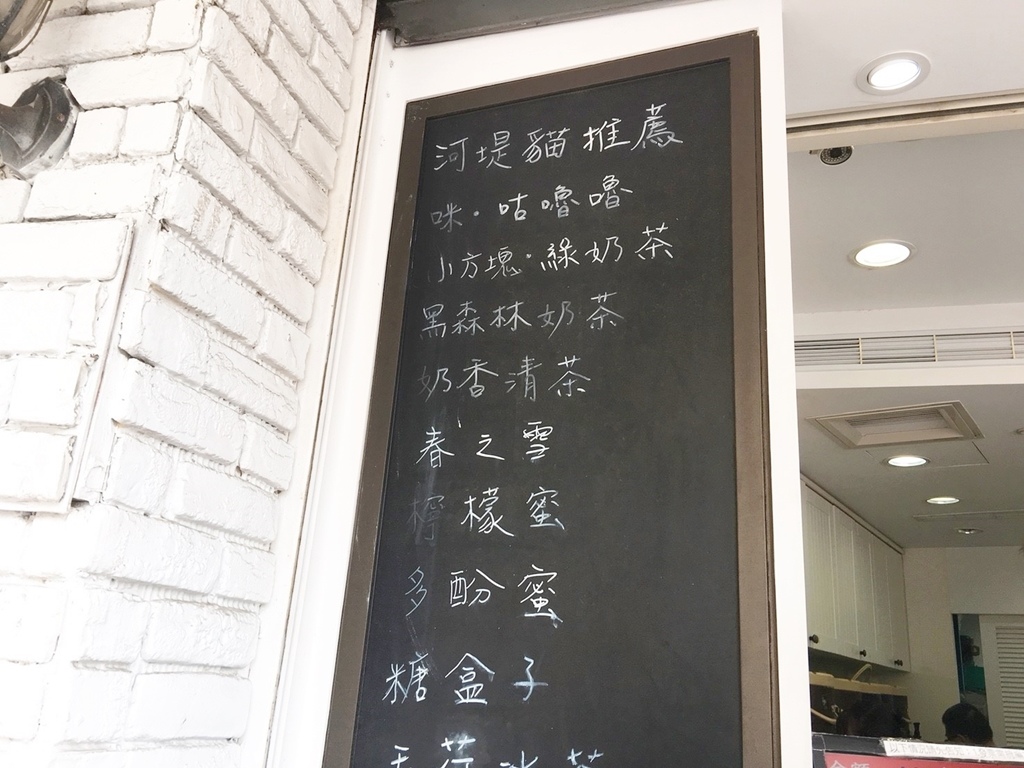 河堤貓推薦
咪·咕嚕嚕
小方塊·綠奶茶
黑森林奶茶
奶香清茶
春之雪
檸檬蜜
多酚蜜
糖盒子
冰茶